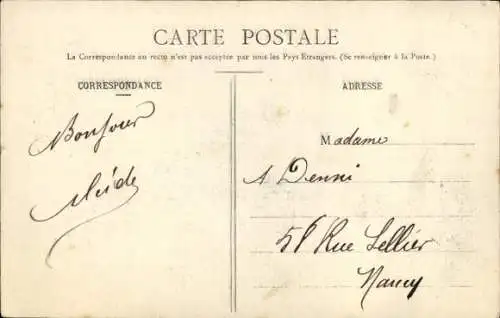 CARTE POSTALE
La Correspondance au recto n'est pas acceptée par tous les Pays Étrangers. (Se renseigner à la Poste.)
CORRESPONDANCE
ADRESSE
Bonjour
Madame
A Denni
58 Rue Sellier
Nancy